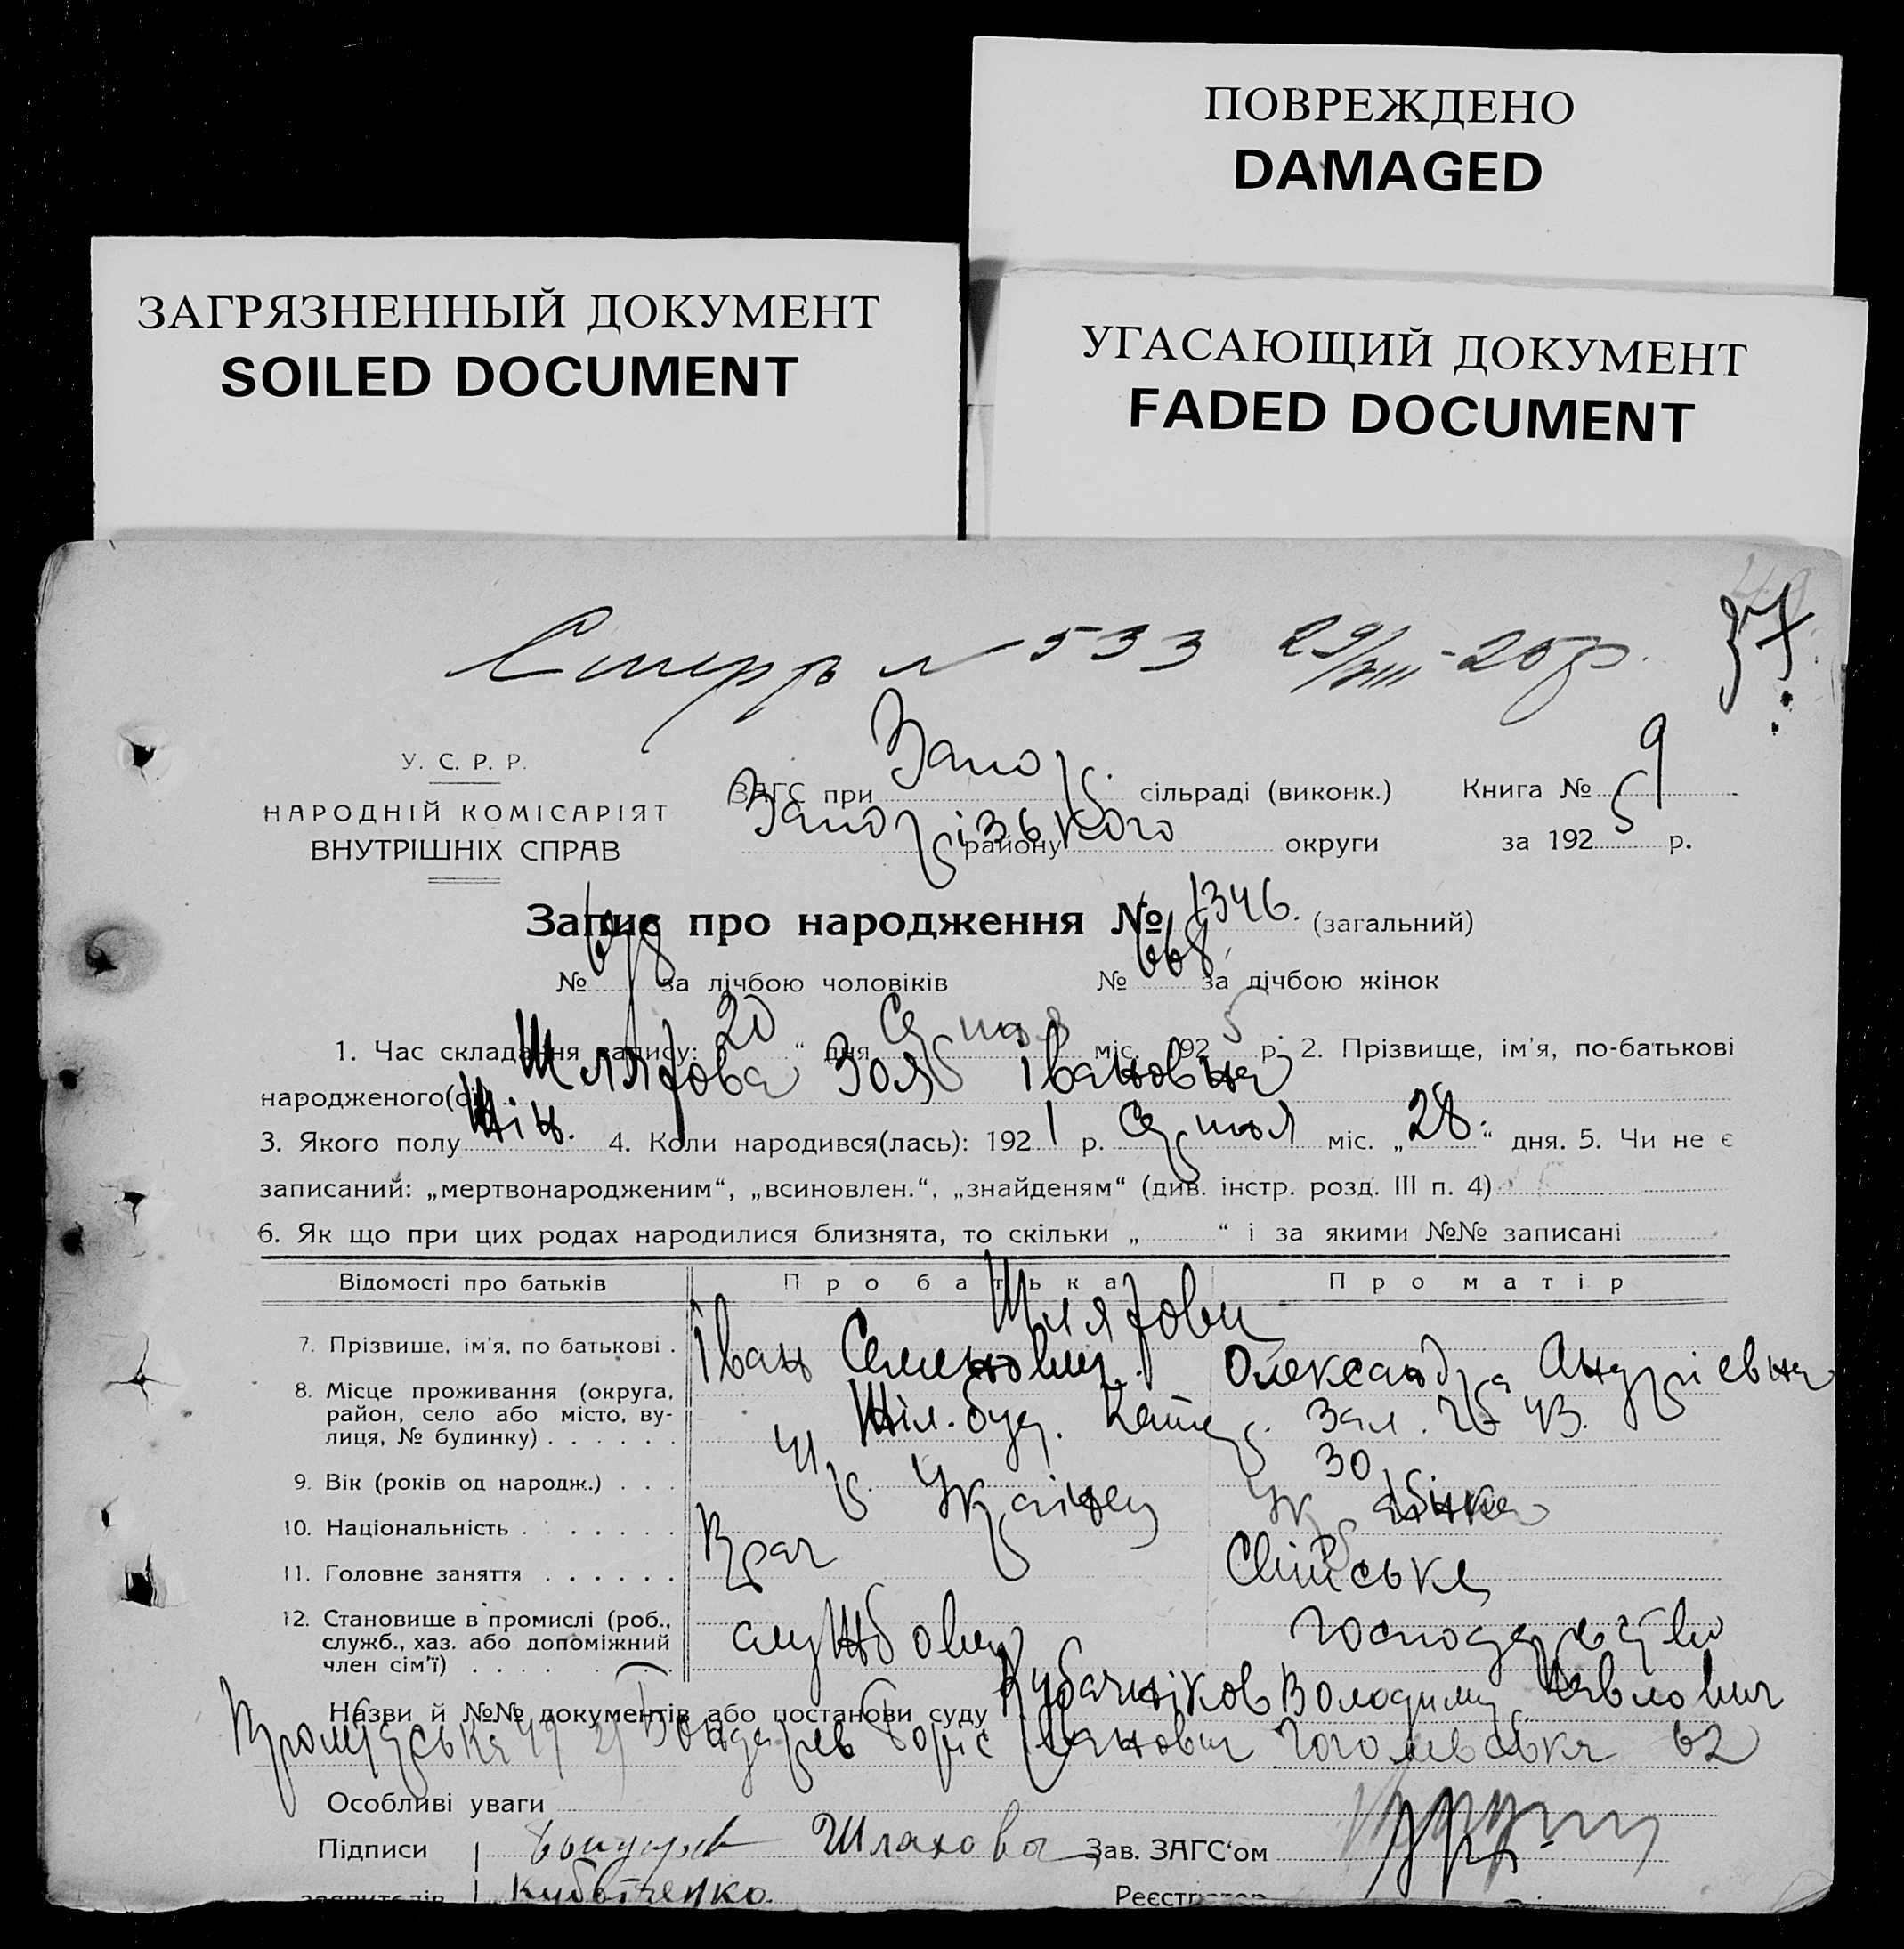 ПОВРЕЖДЕНО
DAMAGED
ЗАГРЯЗНЕННЫЙ ДОКУМЕНТ
SOILED DOCUMENT
УГАСАЮЩИЙ ДОКУМЕНТ
FADED DOCUMENT
37
№ 533 29/VIII-25 р.
У. С. Р. Р.
НАРОДНІЙ КОМІСАРІЯТ
ВНУТРІШНІХ СПРАВ
ЗАГС при Запор. сільраді (виконк.) Книга № 9
Запорізького району округи за 1925 р.
Запис про народження № 1346. (загальний)
№ 678 за лічбою чоловіків № 668 за лічбою жінок
1. Час складання запису: 20 “ дня Серпня міс. 1925 р. 2. Прізвище, ім’я, по-батькові
народженого(ої) Шляхова Зоя Івановна
3. Якого полу жін. 4. Коли народився(лась): 1921 р. Серпня міс. „28“ дня. 5. Чи не є
записаний: „мертвонародженим“, „всиновлен.“, „знайденям“ (див. інстр. розд. III п. 4)
6. Як що при цих родах народилися близнята, то скільки „ “ і за якими №№ записані
Відомості про батьків Про батька Про матір
Шляхови
7. Прізвище, ім’я, по батькові . Іван Семенович Олександра Андрієвна
8. Місце проживання (округа,
район, село або місто, ву-
лиця, № будинку) . . . . . . Жіл. буд. Катер. Зал. 43.
9. Вік (років од народж.) . . . 41 р. 30
10. Національність . . . . . . . Українец Українка
11. Головне заняття . . . . . . Врач Сімйське
12. Становище в промислі (роб.,
служб., хаз. або допоміжний
член сім’ї) . . . . . службовец господарство
Назви й №№ документів або постанови суду Володимир Павлович
49 2) Бондарев Борис Іванович Гоголевська 62
Особливі уваги
Підписи Шляхова Зав. ЗАГС‘ом
заявителів Реєстратор